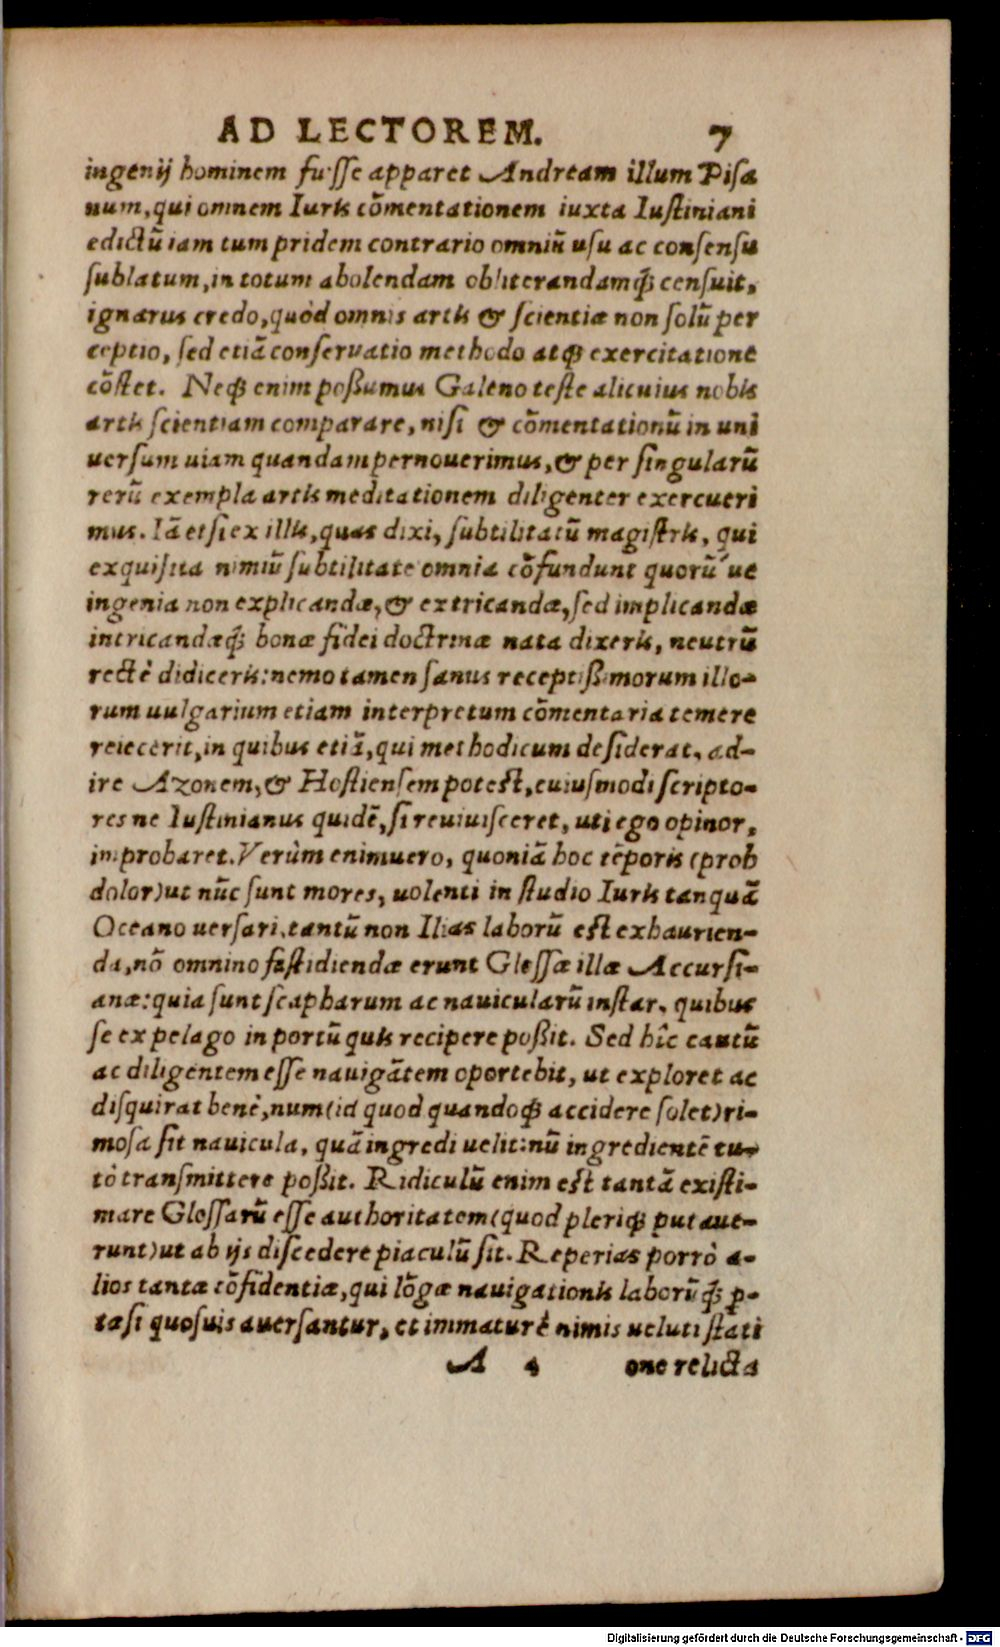 AD LECTOREM. 7
ingenij hominem fuisse apparet Andream illum Pisa
num, qui omnem Iuris cōmentationem iuxta Iustiniani
edictū iam tum pridem contrario omniū usu ac consensu
sublatum, in totum abolendam obliterandamq́; censuit,
ignarus credo, quòd omnis artis & scientiæ non solū per
ceptio, sed etiā conseruatio methodo atq́; exercitatione
cōstet. Neq́; enim possumus Galeno teste alicuius nobis
artis scientiam comparare, nisi & cōmentationū in uni
uersum uiam quandam pernouerimus, & per singularū
rerū exempla artis meditationem diligenter exercueri
mus. Iā etsi ex illis, quas dixi, subtilitatū magistris, qui
exquisita nimiū subtilitate omnia cōfundunt quorū ue
ingenia non explicandæ, & extricandæ, sed implicandæ
intricandæq́; bonæ fidei doctrinæ nata dixeris, neutrū
rectè didiceris: nemo tamen sanus receptissimorum illo-
rum uulgarium etiam interpretum cōmentaria temere
reiecerit, in quibus etiā, qui methodicum desiderat, ad-
ire Azonem, & Hostiensem potest, cuiusmodi scripto-
res ne Iustinianus quidē, si reuiuisceret, uti ego opinor,
improbaret. Verùm enimuero, quoniā hoc tēporis (proh
dolor) ut nūc sunt mores, uolenti in studio Iuris tanquā
Oceano uersari, tantū non Ilias laborū est exhaurien-
da, nō omnino fastidiendæ erunt Glossæ illæ Accursi-
anæ: quia sunt scapharum ac nauicularū instar, quibus
se ex pelago in portū quis recipere possit. Sed hîc cautū
ac diligentem esse nauigātem oportebit, ut exploret ac
disquirat benè, num (id quod quandoq́; accidere solet) ri-
mosa sit nauicula, quā ingredi uelit: nū ingredientē tu-
tò transmittere possit. Ridiculū enim est tantā existi-
mare Glossarū esse authoritatem (quod pleriq́; putaue-
runt) ut ab ijs discedere piaculū sit. Reperias porrò a-
lios tantæ cōfidentiæ, qui lōgæ nauigationis laborūq́; ꝑ-
tæsi quosuis auersantur, et immaturè nimis ueluti stati
A 4 one relicta
Digitalisierung gefördert durch die Deutsche Forschungsgemeinschaft - DFG